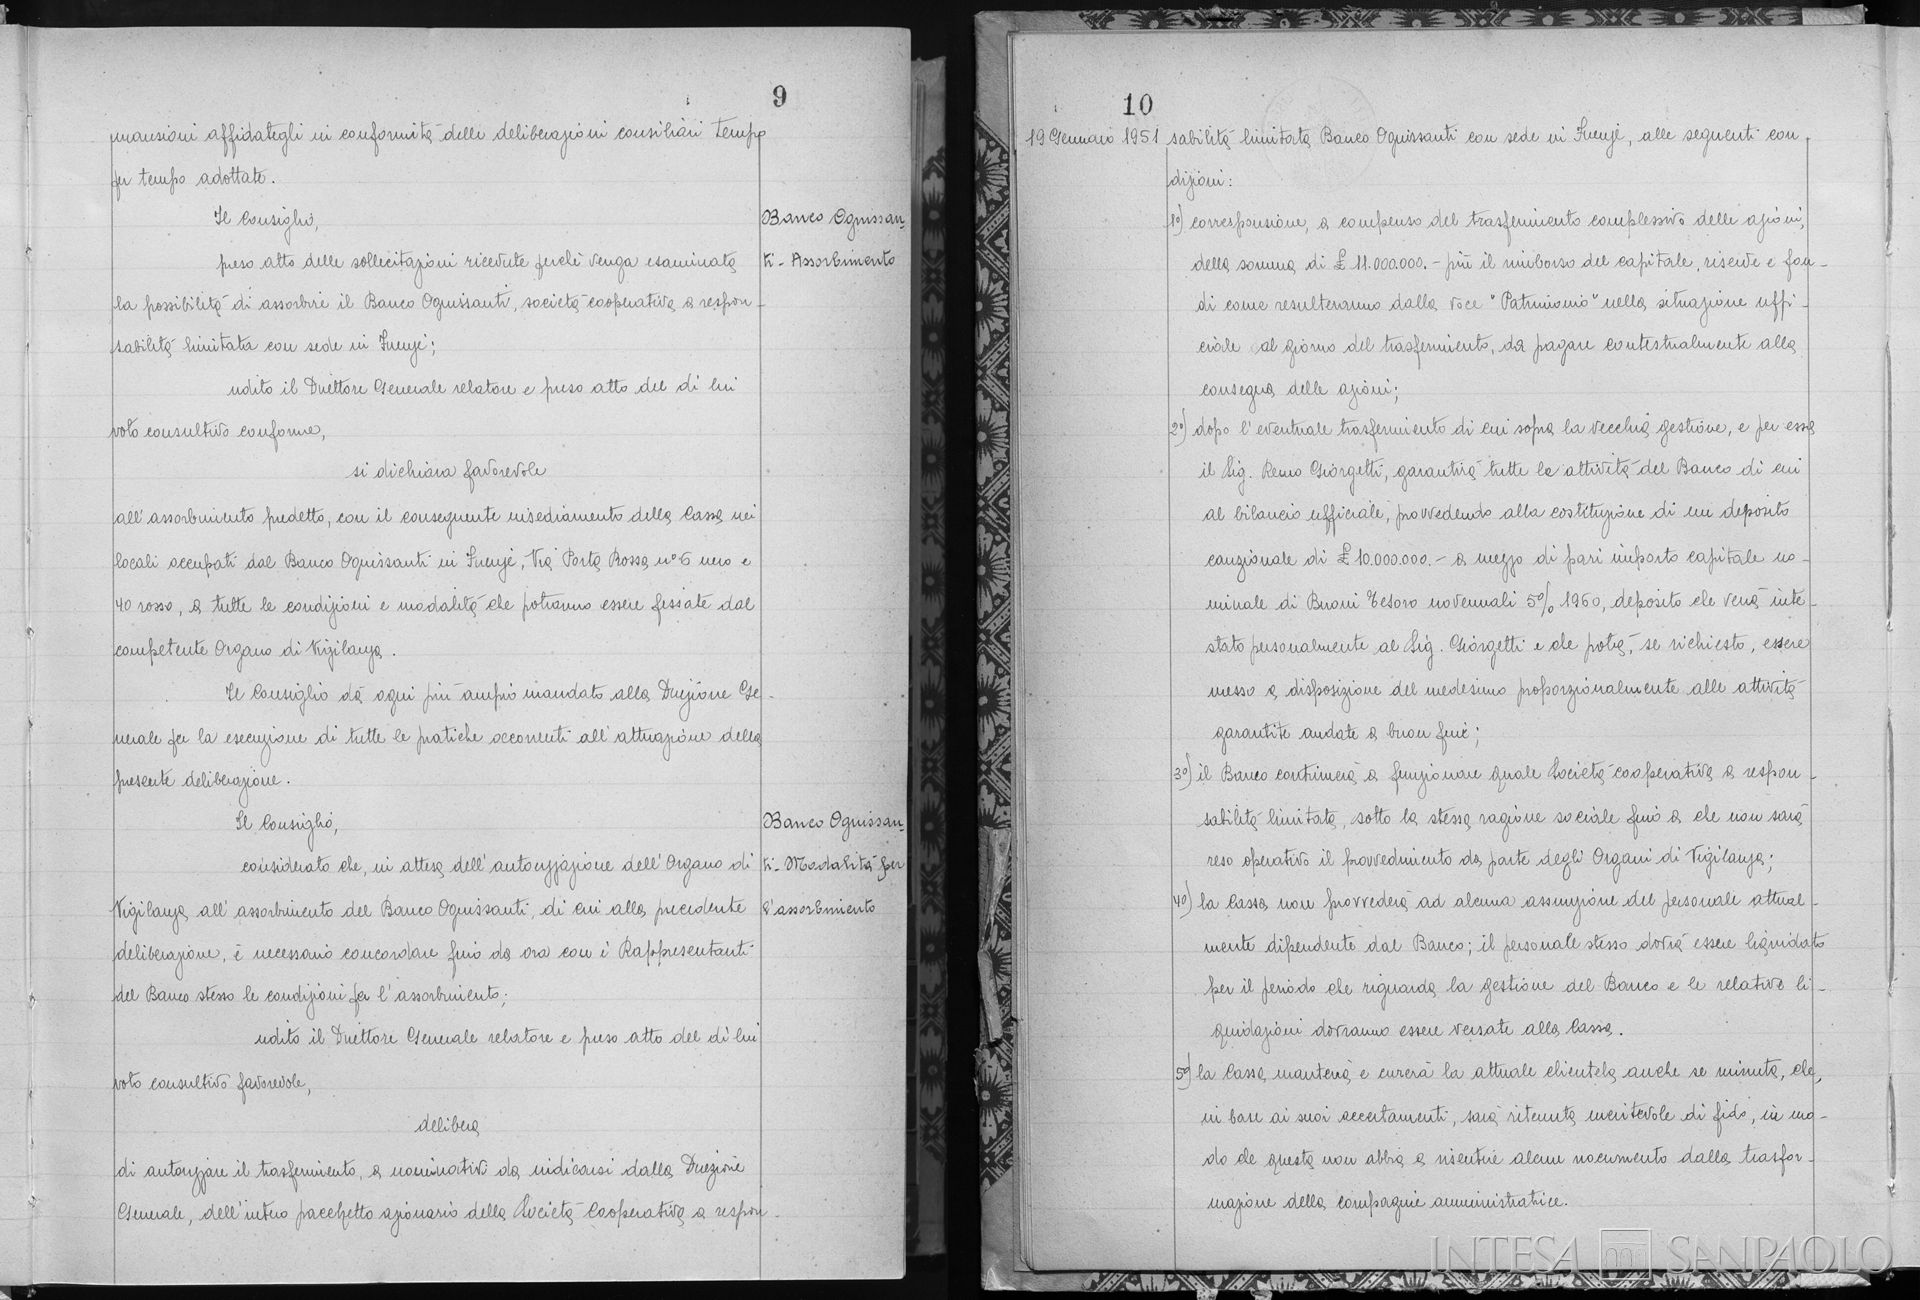 9
mansioni affidategli in conformità delle deliberazioni consiliari tempo
per tempo adottate.
Il Consiglio,
Banco Ognissan-
preso atto delle sollecitazioni ricevute perché venga esaminata
ti - Assorbimento
la possibilità di assorbire il Banco Ognissanti, società cooperativa a respon-
sabilità limitata con sede in Firenze;
udito il Direttore Generale relatore e preso atto del di lui
voto consultivo conforme,
si dichiara favorevole
all'assorbimento predetto, con il conseguente insediamento della Cassa nei
locali occupati dal Banco Ognissanti in Firenze, Via Porta Rossa n° 6 nero e
40 rosso, a tutte le condizioni e modalità che potranno essere fissate dal
competente Organo di Vigilanza.
Il Consiglio dà ogni più ampio mandato alla Direzione Ge-
nerale per la esecuzione di tutte le pratiche occorrenti all'attuazione della
presente deliberazione.
Il Consiglio,
Banco Ognissan-
considerato che, in attesa dell'autorizzazione dell'Organo di
ti - Modalità per
Vigilanza all'assorbimento del Banco Ognissanti, di cui alla precedente
l'assorbimento
deliberazione, è necessario concordare fino da ora con i Rappresentanti
del Banco stesso le condizioni per l'assorbimento;
udito il Direttore Generale relatore e preso atto del di lui
voto consultivo favorevole,
delibera
di autorizzare il trasferimento, a nominativi da indicarsi dalla Direzione
Generale, dell'intero pacchetto azionario della Società Cooperativa a respon-
10
19 Gennaio 1951
sabilità limitata Banco Ognissanti con sede in Firenze, alle seguenti con
dizioni:
1°) corresponsione, a compenso del trasferimento complessivo delle azioni,
della somma di £ 11.000.000.- più il rimborso del capitale, riserve e fon-
di come risulteranno dalla voce "Patrimonio" nella situazione uffi-
ciale al giorno del trasferimento, da pagare contestualmente alla
consegna delle azioni;
2°) dopo l'eventuale trasferimento di cui sopra la vecchia gestione, e per essa
il Sig. Remo Giorgetti, garantirà tutte le attività del Banco di cui
al bilancio ufficiale, provvedendo alla costituzione di un deposito
cauzionale di £ 10.000.000.- a mezzo di pari importo capitale no-
minale di Buoni Tesoro novennali 5% 1960, deposito che verrà inte-
stato personalmente al Sig. Giorgetti e che potrà, se richiesto, essere
messo a disposizione del medesimo proporzionalmente alle attività
garantite andate a buon fine;
3°) il Banco continuerà a funzionare quale Società cooperativa a respon-
sabilità limitata, sotto la stessa ragione sociale fino a che non sarà
reso operativo il provvedimento da parte degli Organi di Vigilanza;
4°) la Cassa non provvederà ad alcuna assunzione del personale attual-
mente dipendente dal Banco; il personale stesso dovrà essere liquidato
per il periodo che riguarda la gestione del Banco e le relative li-
quidazioni dovranno essere versate alla Cassa.
5°) la Cassa manterrà e curerà la attuale clientela anche se minuta, che,
in base ai suoi accertamenti, sarà ritenuta meritevole di fido, in mo-
do che questa non abbia a risentire alcun nocumento dalla trasfor-
mazione della compagine amministratrice.
INTESA SANPAOLO